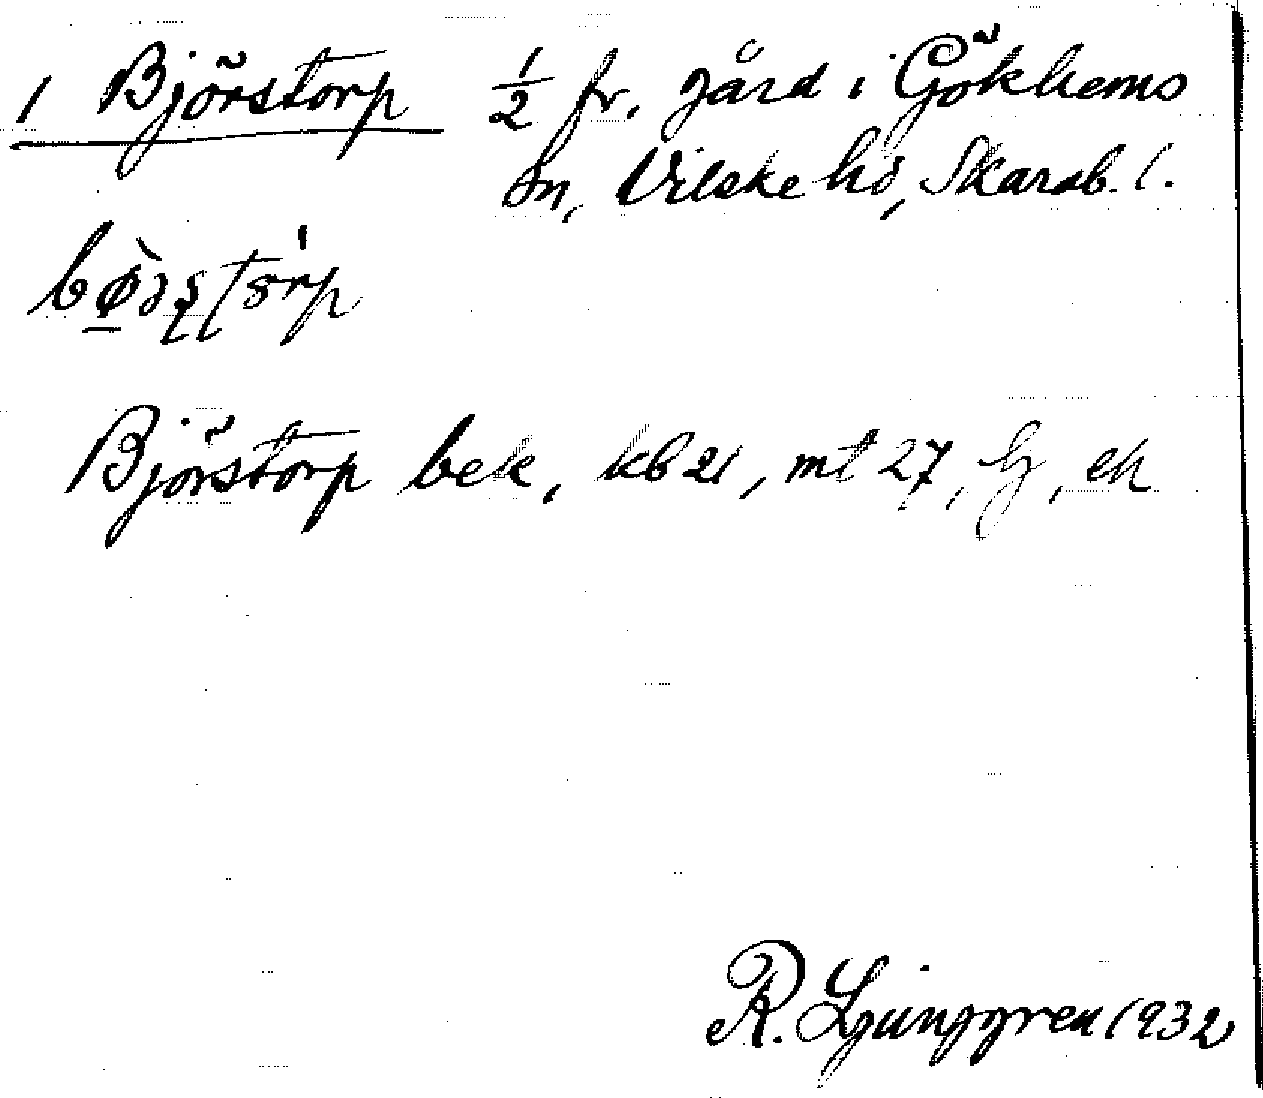 1 Björstorp ½ fr. gård i Gökhems
sn, Vilske hd, Skarab. l.
Björstorp bek, kb 21, mt 27, hy, ek
R. Ljunggren 1932